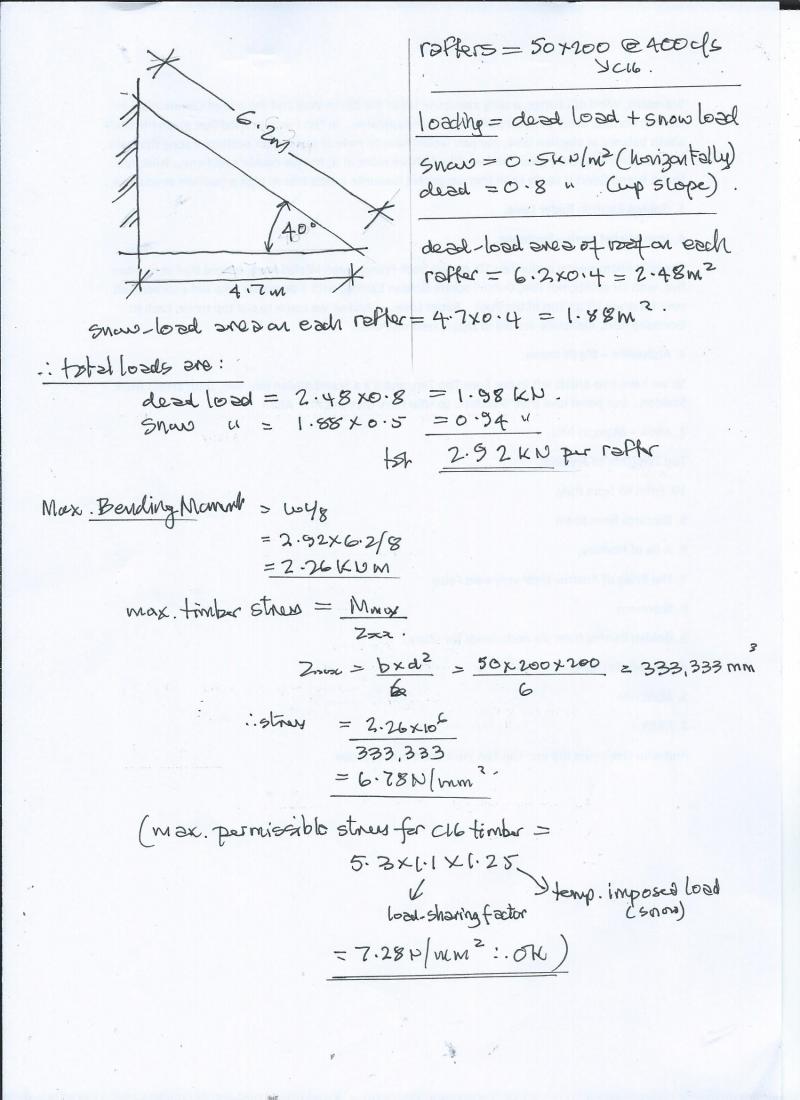 rafters = 50x200 @ 400 c/s
↘C16.
loading = dead load + snow load
snow = 0.5kN/m² (horizontally)
dead = 0.8 " (up slope).
6.2m
40°
4.7m
dead-load area of roof on each
rafter = 6.2x0.4 = 2.48m²
snow-load area on each rafter = 4.7x0.4 = 1.88m².
∴ total loads are:
dead load = 2.48x0.8 = 1.98 kN.
Snow " = 1.88x0.5 = 0.94 "
tot 2.92 kN per rafter
Max. Bending Moment = wl/8
= 2.92x6.2/8
= 2.26 kNm
max. timber stress = Mmax / Zxx.
Zmax = bxd² / 6 = 50x200x200 / 6 = 333,333 mm³
∴ stress = 2.26x10⁶ / 333,333
= 6.78N/mm².
(max. permissible stress for C16 timber =
5.3x1.1x1.25
load-sharing factor
temp. imposed load
(snow)
= 7.28N/mm² ∴ OK)